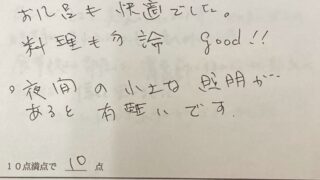 お風呂も快適でした。
料理も勿論 good!!
。夜間の小さな照明が…
あると有難いです
10点満点で 10 点